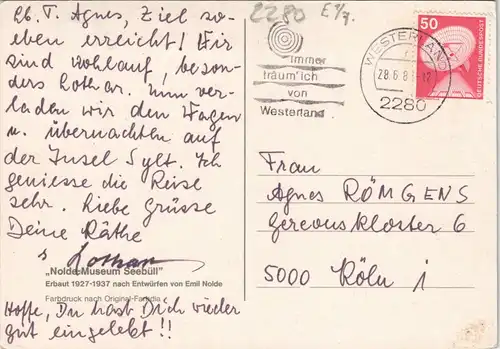 Lb. T. Agnes, Ziel so-
eben erreicht! Wir
sind wohlauf, beson-
ders Lothar. Nun ver-
laden wir den Wagen
u. übernachten auf
der Insel Sylt. Ich
geniesse die Reise
sehr. Liebe Grüsse
Deine Käthe
Lothar
„Nolde-Museum Seebüll“
Erbaut 1927-1937 nach Entwürfen von Emil Nolde
Farbdruck nach Original-Farbdia
Hoffe, Du hast Dich wieder
gut eingelebt!!
2280 E1/7.
immer
träum'ich
von
Westerland
WESTERLAND
28.6.8
2280
50
DEUTSCHE BUNDESPOST
Frau
Agnes RÖMGENS
Gereonskloster 6
5000 Köln 1